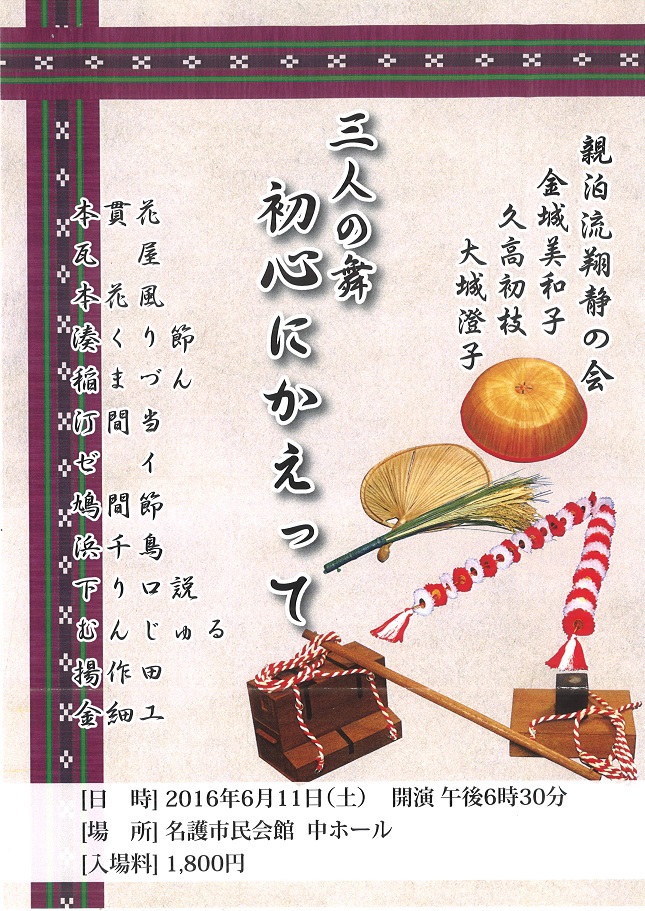 親泊流翔静の会
金城美和子
久高初枝
大城澄子
三人の舞
初心にかえって
本貫花
瓦屋
本花風
湊くり節
稲まづん
汀間当
ゼイ
鳩間節
浜千鳥
下り口説
むんじゅる
揚作田
金細工
[日　時] 2016年6月11日(土)　開演 午後6時30分
[場　所] 名護市民会館 中ホール
[入場料] 1,800円